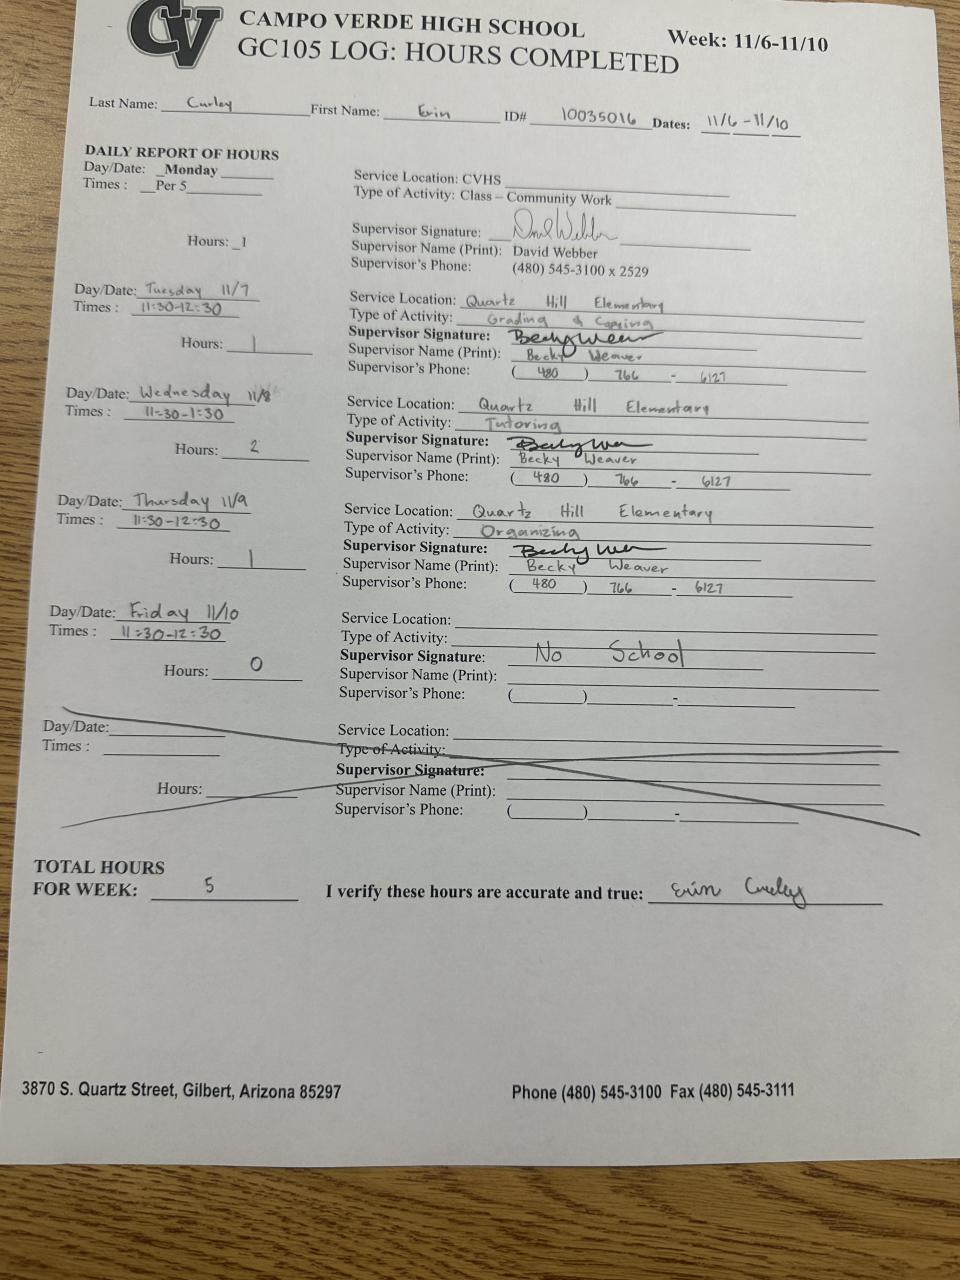 CV
CAMPO VERDE HIGH SCHOOL Week: 11/6-11/10
GC105 LOG: HOURS COMPLETED
Last Name: Curley First Name: Erin ID# 10035016 Dates: 11/6-11/10
DAILY REPORT OF HOURS
Day/Date: _Monday
Times : Per 5
Service Location: CVHS
Type of Activity: Class – Community Work
Supervisor Signature: David Webber
Hours: _1
Supervisor Name (Print): David Webber
Supervisor's Phone: (480) 545-3100 x 2529
Day/Date: Tuesday 11/7
Times : 11:30-12:30
Service Location: Quartz Hill Elementary
Type of Activity: Grading & Copying
Supervisor Signature: Becky Weaver
Hours: 1
Supervisor Name (Print): Becky Weaver
Supervisor's Phone: (480) 766 - 6127
Day/Date: Wednesday 11/8
Times : 11:30-1:30
Service Location: Quartz Hill Elementary
Type of Activity: Tutoring
Supervisor Signature: Becky Wea
Hours: 2
Supervisor Name (Print): Becky Weaver
Supervisor's Phone: (480) 766 - 6127
Day/Date: Thursday 11/9
Times : 11:30-12:30
Service Location: Quartz Hill Elementary
Type of Activity: Organizing
Supervisor Signature: Becky Wea
Hours: 1
Supervisor Name (Print): Becky Weaver
Supervisor's Phone: (480) 766 - 6127
Day/Date: Friday 11/10
Times : 11:30-12:30
Service Location:
Type of Activity:
Supervisor Signature: No School
Hours: 0
Supervisor Name (Print):
Supervisor's Phone: ( ) -
Day/Date:
Times :
Service Location:
Type of Activity:
Supervisor Signature:
Hours:
Supervisor Name (Print):
Supervisor's Phone: ( ) -
TOTAL HOURS
FOR WEEK: 5 I verify these hours are accurate and true: Erin Curley
3870 S. Quartz Street, Gilbert, Arizona 85297 Phone (480) 545-3100 Fax (480) 545-3111